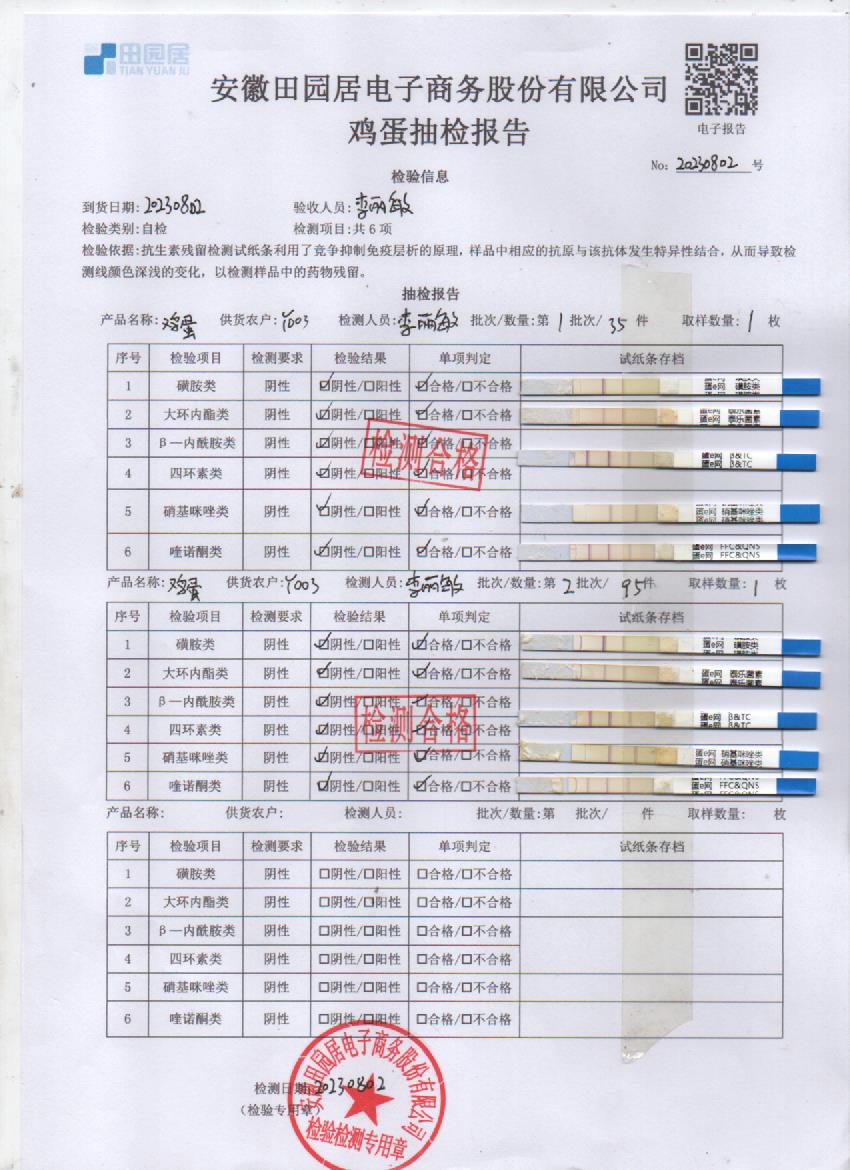 田园居
TIAN YUAN JU
安徽田园居电子商务股份有限公司
鸡蛋抽检报告
电子报告
No: 20230802 号
检验信息
到货日期: 20230802 验收人员: 李丽敏
检验类别: 自检 检测项目: 共 6 项
检验依据: 抗生素残留检测试纸条利用了竞争抑制免疫层析的原理，样品中相应的抗原与该抗体发生特异性结合，从而导致检
测线颜色深浅的变化，以检测样品中的药物残留。
抽检报告
产品名称: 鸡蛋 供货农户: Y003 检测人员: 李丽敏 批次/数量: 第 1 批次/ 35 件 取样数量: 1 枚
序号 检验项目 检测要求 检验结果 单项判定 试纸条存档
1 磺胺类 阴性 ☑阴性/☐阳性 ☑合格/☐不合格 蛋e网 磺胺类
2 大环内酯类 阴性 ☑阴性/☐阳性 ☑合格/☐不合格 蛋e网 泰乐菌素
3 β—内酰胺类 阴性 ☑阴性/☐阳性 ☑合格/☐不合格 蛋e网 β&TC
检测合格
4 四环素类 阴性 ☑阴性/☐阳性 ☑合格/☐不合格
5 硝基咪唑类 阴性 ☑阴性/☐阳性 ☑合格/☐不合格 蛋e网 硝基咪唑类
6 喹诺酮类 阴性 ☑阴性/☐阳性 ☑合格/☐不合格 蛋e网 FFC&QNS
产品名称: 鸡蛋 供货农户: Y003 检测人员: 李丽敏 批次/数量: 第 2 批次/ 95 件 取样数量: 1 枚
序号 检验项目 检测要求 检验结果 单项判定 试纸条存档
1 磺胺类 阴性 ☑阴性/☐阳性 ☑合格/☐不合格 蛋e网 磺胺类
2 大环内酯类 阴性 ☑阴性/☐阳性 ☑合格/☐不合格 蛋e网 泰乐菌素
3 β—内酰胺类 阴性 ☑阴性/☐阳性 ☑合格/☐不合格 蛋e网 β&TC
检测合格
4 四环素类 阴性 ☑阴性/☐阳性 ☑合格/☐不合格
5 硝基咪唑类 阴性 ☑阴性/☐阳性 ☑合格/☐不合格 蛋e网 硝基咪唑类
6 喹诺酮类 阴性 ☑阴性/☐阳性 ☑合格/☐不合格 蛋e网 FFC&QNS
产品名称: 供货农户: 检测人员: 批次/数量: 第 批次/ 件 取样数量: 枚
序号 检验项目 检测要求 检验结果 单项判定 试纸条存档
1 磺胺类 阴性 ☐阴性/☐阳性 ☐合格/☐不合格
2 大环内酯类 阴性 ☐阴性/☐阳性 ☐合格/☐不合格
3 β—内酰胺类 阴性 ☐阴性/☐阳性 ☐合格/☐不合格
4 四环素类 阴性 ☐阴性/☐阳性 ☐合格/☐不合格
5 硝基咪唑类 阴性 ☐阴性/☐阳性 ☐合格/☐不合格
6 喹诺酮类 阴性 ☐阴性/☐阳性 ☐合格/☐不合格
安徽田园居电子商务股份有限公司
检测日期: 20230802
（检验专用章）
检验检测专用章